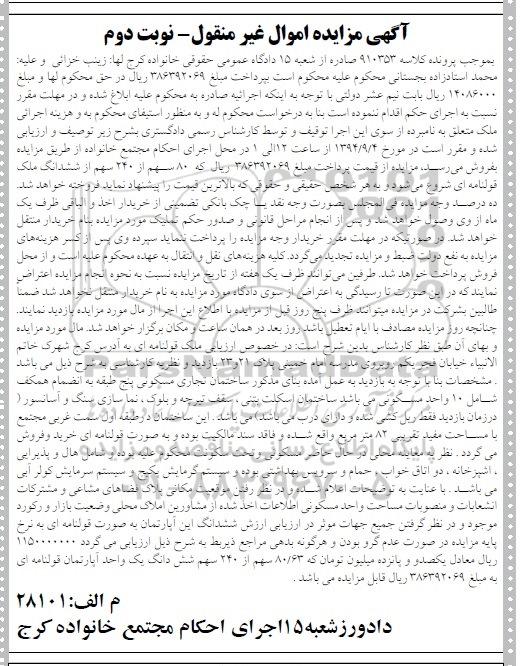 آگهی مزایده اموال غیر منقول- نوبت دوم
بموجب پرونده کلاسه ۹۱۰۳۵۳ صادره از شعبه ۱۵ دادگاه عمومی حقوقی خانواده کرج لها: زینب خزائی و علیه:
محمد استادزاده بجستانی محکوم علیه محکوم است بپرداخت مبلغ ۳۸۶۳۹۲۰۶۹ ریال در حق محکوم لها و مبلغ
۱۴۰۸۶۰۰۰ ریال بابت نیم عشر دولتی با توجه به اینکه اجرائیه صادره به محکوم علیه ابلاغ شده و در مهلت مقرر
نسبت به اجرای حکم اقدام ننموده است بنا به درخواست محکوم له و به منظور استیفای محکوم به و هزینه اجرائی
ملک متعلق به نامبرده از سوی این اجرا توقیف و توسط کارشناس رسمی دادگستری بشرح زیر توصیف و ارزیابی
شده و مقرر است در مورخ ۱۳۹۴/۹/۴ از ساعت ۱۲الی ۱ در محل اجرای احکام مجتمع خانواده از طریق مزایده
بفروش می‌رسد. مزایده از قیمت پرداخت مبلغ ۳۸۶۳۹۲۰۶۹ ریال که ۸۰ سهم از ۲۴۰ سهم از ششدانگ ملک
قولنامه ای شروع می‌گردد و بهر شخص حقیقی و حقوقی که بالاترین قیمت را پیشنهاد نماید فروخته خواهد شد.
ده درصد وجه مزایده فی المجلس بصورت وجه نقد یا چک بانکی تضمینی از خریدار اخذ و الباقی ظرف یک
ماه از وی وصول خواهد شد و پس از انجام مراحل قانونی و صدور حکم تملیک مورد مزایده بنام خریدار منتقل
خواهد شد. در صورتیکه در مهلت مقرر خریدار وجه مزایده را پرداخت ننماید سپرده وی پس از کسر هزینه‌های
مزایده به نفع دولت ضبط و مزایده تجدید می‌گردد. کلیه هزینه‌های نقل و انتقال به عهده محکوم علیه است و از محل
فروش پرداخت خواهد شد. طرفین می‌توانند ظرف یک هفته از تاریخ مزایده نسبت به نحوه انجام مزایده اعتراض
نمایند که در این صورت تا رسیدگی به اعتراض از سوی دادگاه مورد مزایده به نام خریدار منتقل نخواهد شد ضمناً
طالبین بشرکت در مزایده میتوانند ظرف پنج روز قبل از مزایده با اطلاع این اجرا از مال مورد مزایده بازدید نمایند.
چنانچه روز مزایده مصادف با ایام تعطیل باشد روز بعد در همان ساعت و مکان برگزار خواهد شد. مال مورد مزایده
و بهای آن طبق نظر کارشناس بدین شرح است: در خصوص ارزیابی ملک قولنامه ای به آدرس کرج شهرک خاتم
الانبیاء خیابان فجر یکم روبروی مدرسه امام خمینی پلاک ۲۳۰۲۱ بازدید و نظریه کارشناسی به شرح ذیل می باشد
. مشخصات بنا با توجه به بازدید به عمل آمده بنای مذکور ساختمان تجاری مسکونی پنج طبقه به انضمام همکف
شامل ۱۰ واحد مسکونی می باشد ساختمان اسکلت بتنی ،سقف تیرچه و بلوک ، نما سازی سنگ و آسانسور (
درزمان بازدید فقط ریل کشی شده و دارای درب می باشد) می باشد . این ساختمان درطبقه اول سمت غربی مجتمع
با مساحت مفید تقریبی ۸۲ مترمربع واقع شده و فاقد سند مالکیت بوده و به صورت قولنامه ای خرید وفروش
می گردد . نظر به تحقیقات محلی درحال حاضر مسکونی وتحت سکونت محکوم علیه بوده و شامل هال و پذیرایی
، اشپزخانه ، دو اتاق خواب ، حمام و سرویس بهداشتی بوده و سیستم گرمایش پکیج و سیستم سرمایش کولر آبی
می باشد . با عنایت به توضیحات اعلام شده و در نظر گرفتن موقعیت مکانی پلاک فضاهای مشاعی و مشترکات
انشعابات و منصوبات مساحت واحد مسکونی اطلاعات اخذ شده از مشاورین املاک محلی وضعیت بازار و رکورد
موجود و در نظر گرفتن جمیع جهات موثر در ارزیابی ارزش ششدانگ این آپارتمان به صورت قولنامه ای به نرخ
پایه مزایده در صورت عدم گرو بودن و هرگونه بدهی مراجع ذیربط به شرح ذیل ارزیابی می گردد ۱۱۵۰۰۰۰۰۰۰
ریال معادل یکصدو و پانزده میلیون تومان که ۸۰/۶۳ سهم از ۲۴۰ سهم شش دانگ یک واحد آپارتمان قولنامه ای
به مبلغ ۳۸۶۳۹۲۰۶۹ ریال قابل مزایده می باشد .
م الف:۲۸۱۰۱
دادورزشعبه۱۵اجرای احکام مجتمع خانواده کرج